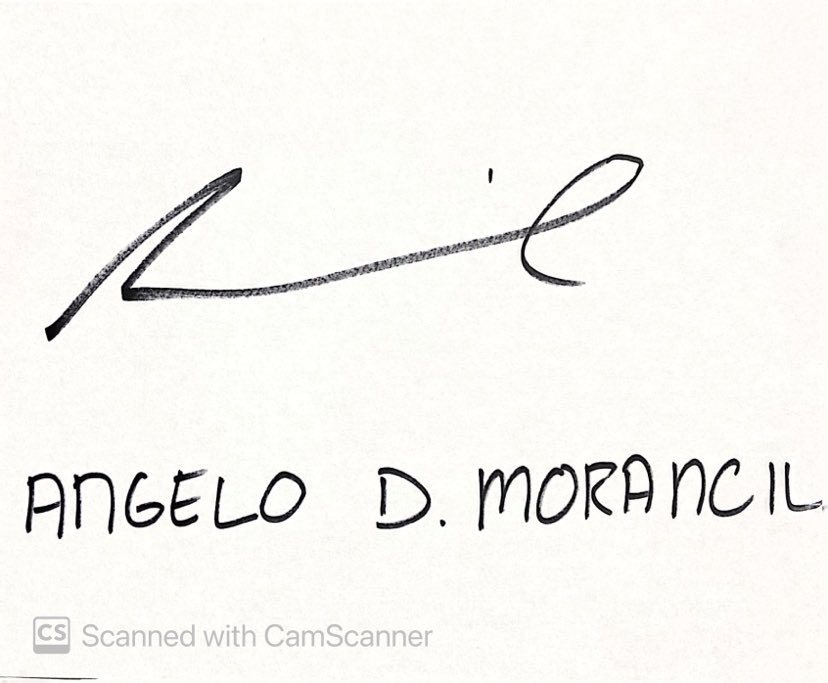 ANGELO D. MORANCIL
CS Scanned with CamScanner